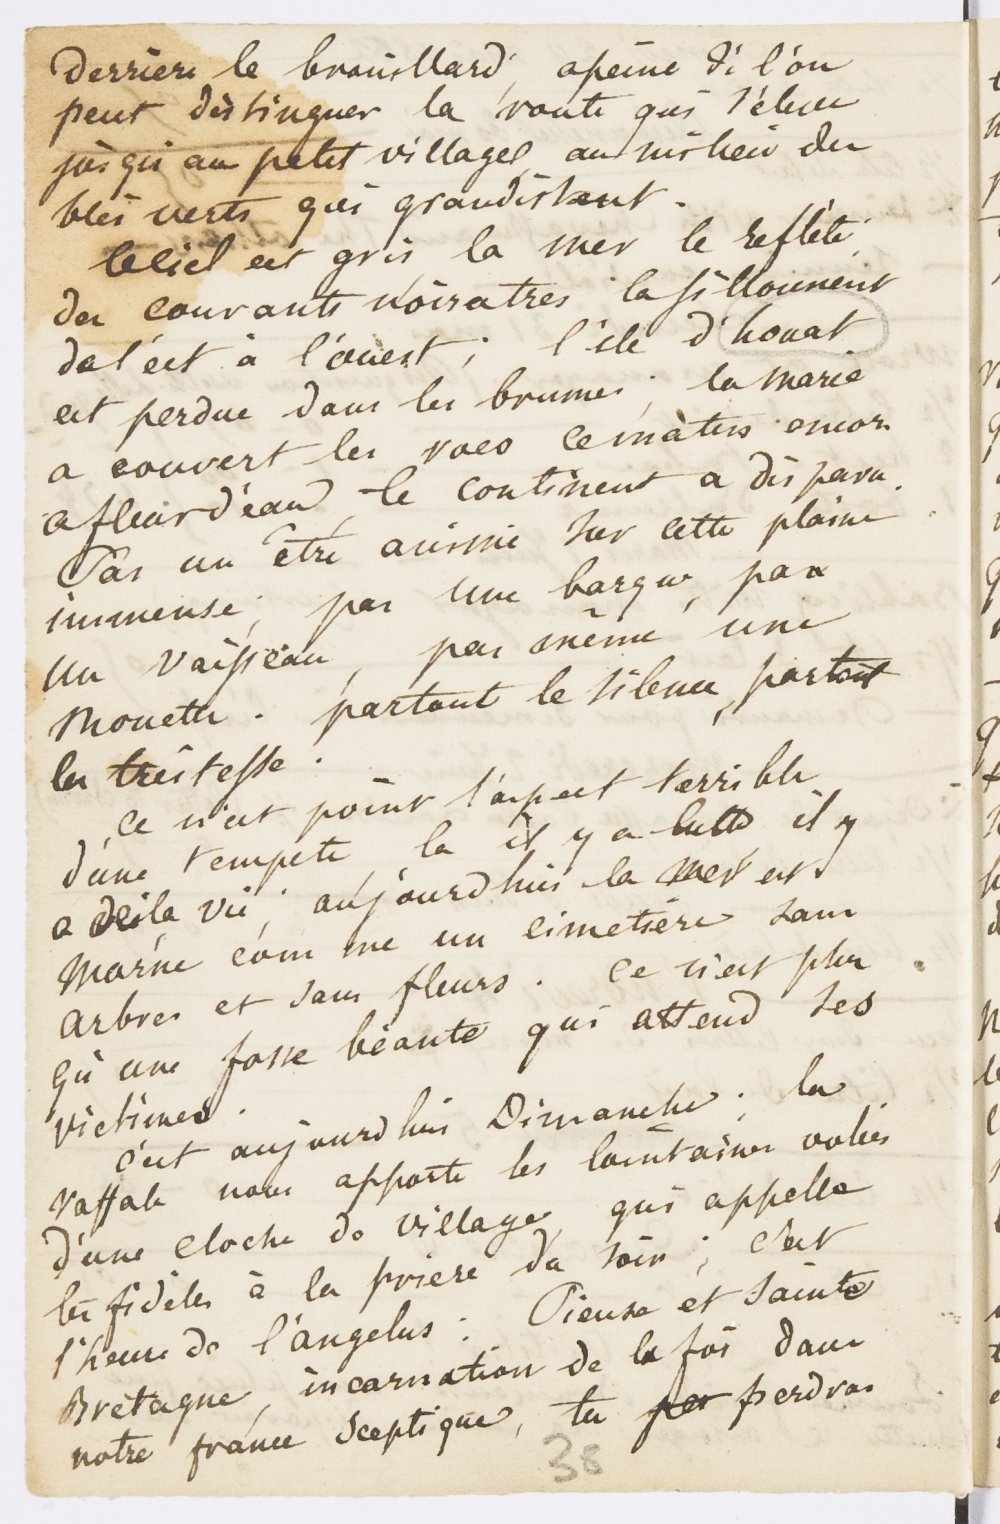 Derriere le brouillard, apeine si l'on
peut distinguer la route qui s'éleve
jusqu'au petit village, au milieu des
blés verts qui grandissent.
le ciel est gris, la mer le reflète,
des courants noiratres la sillonnent
de l'est à l'ouest; l'ile d'houat
est perdue dans les brumes; la marée
a couvert les rocs ce matin encore
a fleur d'eau, le continent a disparu.
Pas un être animé sur cette plaine
immense, pas une barque, pas
un vaisseau, pas même une
mouette. partout le silence, partout
la tristesse.
Ce n'est point l'aspect terrible
d'une tempete, la il y a lutte il y
a de la vie, aujourdhui la mer est
morne comme un cimetière sans
arbres et sans fleurs. Ce n'est plus
qu'une fosse béante qui attend ses
victimes.
C'est aujourdhui Dimanche; la
raffale nous apporte les lointaines volées
d'une cloche de village, qui appelle
les fidèles à la prière du soir; c'est
l'heure de l'angelus: Pieuse et Sainte
Bretagne, incarnation de la foi dans
notre france sceptique, tu per perdras
38